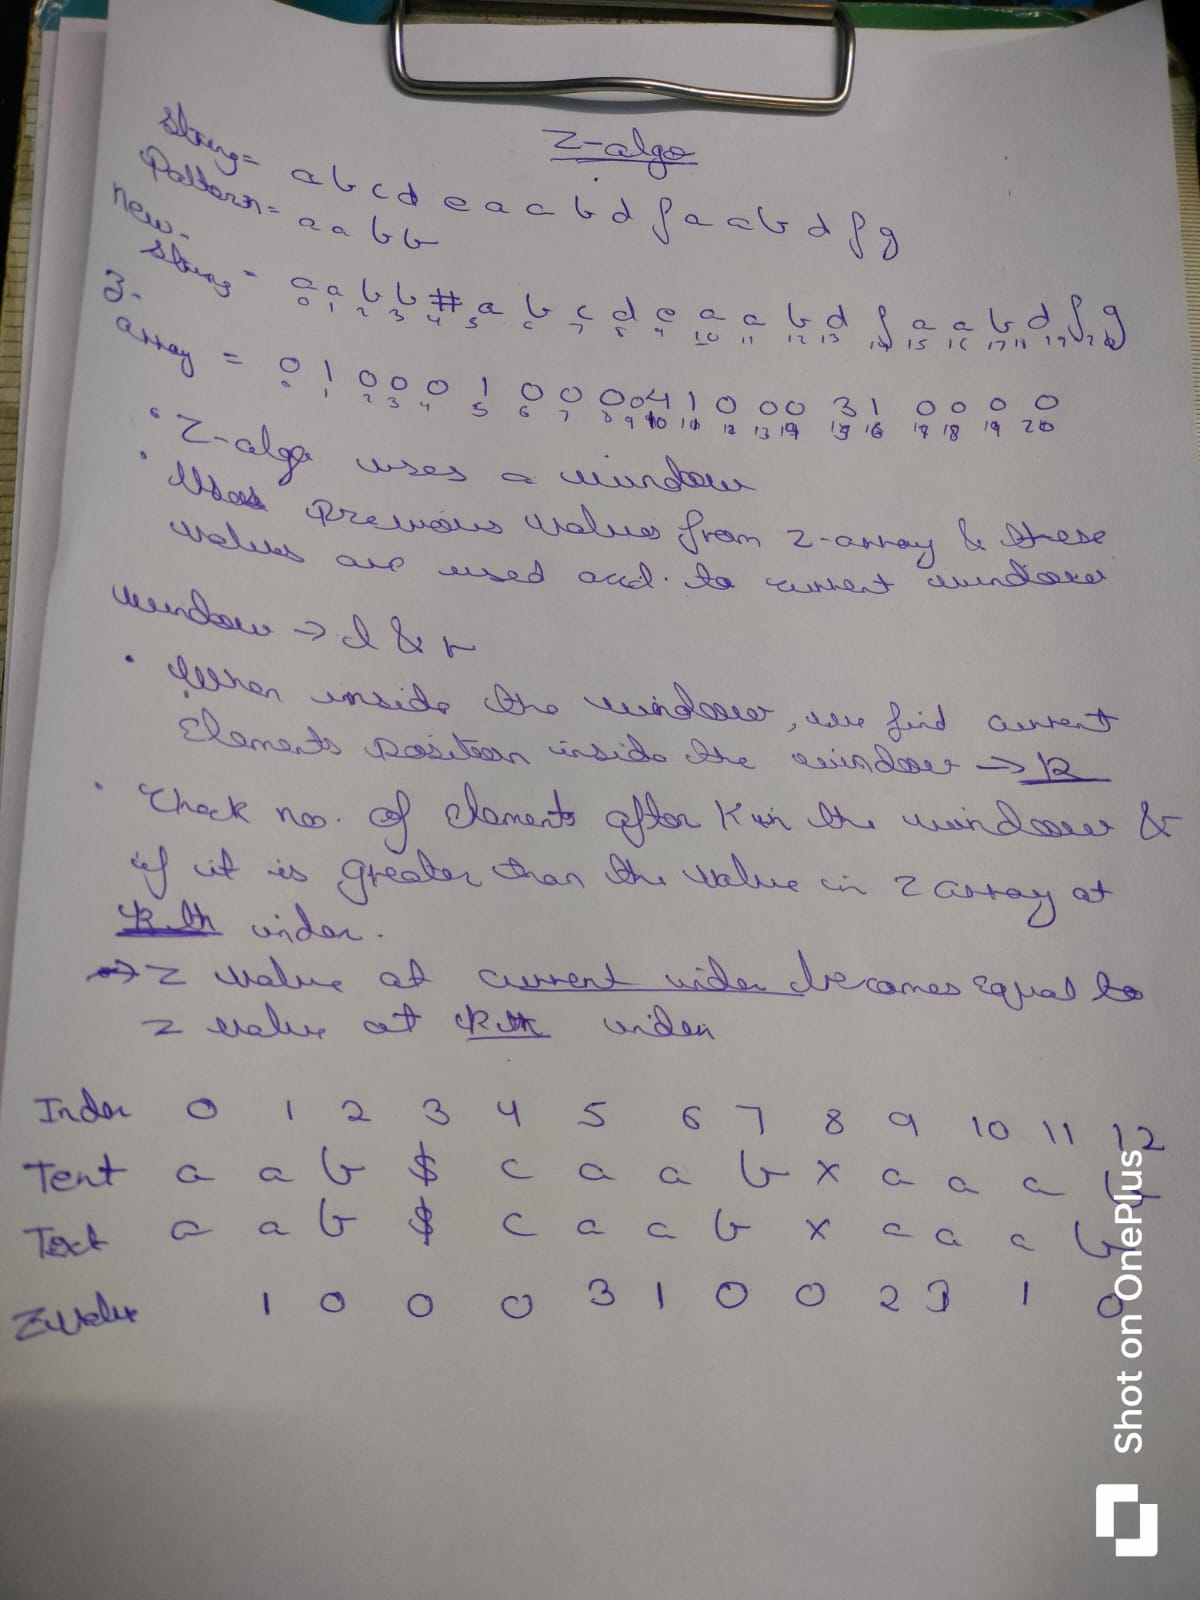 Z-algo
String = a b c d e a a b d f a a b d f g
Pattern = a a b b
new-
string = a a b b # a b c d e a a b d f a a b d f g
0 1 2 3 4 5 6 7 8 9 10 11 12 13 14 15 16 17 18 19 20
Z-
array = 0 1 0 0 0 1 0 0 0 0 4 1 0 0 0 3 1 0 0 0 0
0 1 2 3 4 5 6 7 8 9 10 11 12 13 14 15 16 17 18 19 20
• Z-algo uses a window
• Uses previous values from z-array & these
values are used acc. to current window
window → l & r
• When inside the window, we find current
elements position inside the window → k
• Check no. of elements after K in the window &
if it is greater than the value in z array at
kth index.
→ z value at current index becomes equal to
z value at kth index
Index 0 1 2 3 4 5 6 7 8 9 10 11 12
Text a a b $ c a a b x a a a b
Text a a b $ c a a b x a a a b
Zvalue 1 0 0 0 3 1 0 0 2 3 1 0
Shot on OnePlus